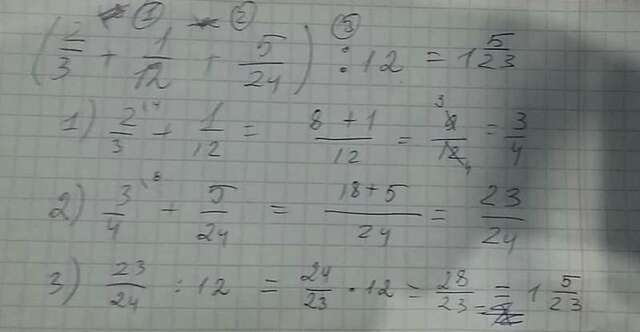 ① ② ③
(2/3 + 1/12 + 5/24) : 12 = 1 5/23
1) 2/3 \4 + 1/12 = 8+1/12 = 9/12 = 3/4
2) 3/4 + 5/24 = 18+5/24 = 23/24
3) 23/24 : 12 = 24/23 · 12 = 28/23 = 1 5/23